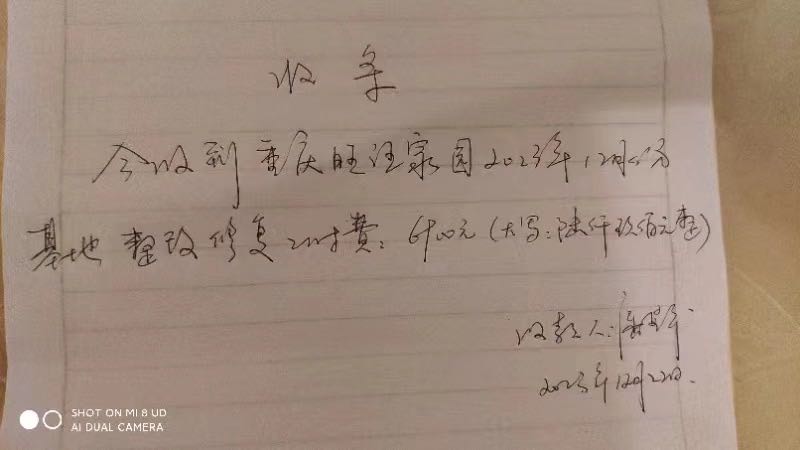 收条
今收到重庆旺汪家园2023年12月份
基地整改修复 费：6900元（大写：陆仟玖佰元整）
收款人：
2023年12月22日.
SHOT ON MI 8 UD
AI DUAL CAMERA